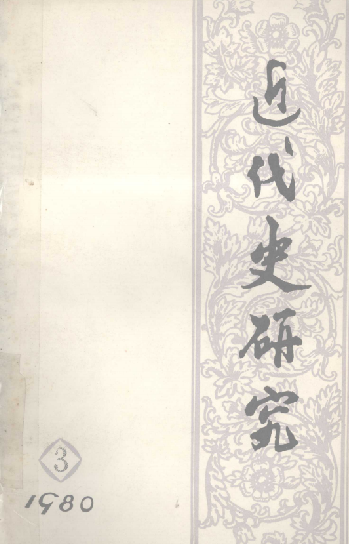 近代史研究
3
1980